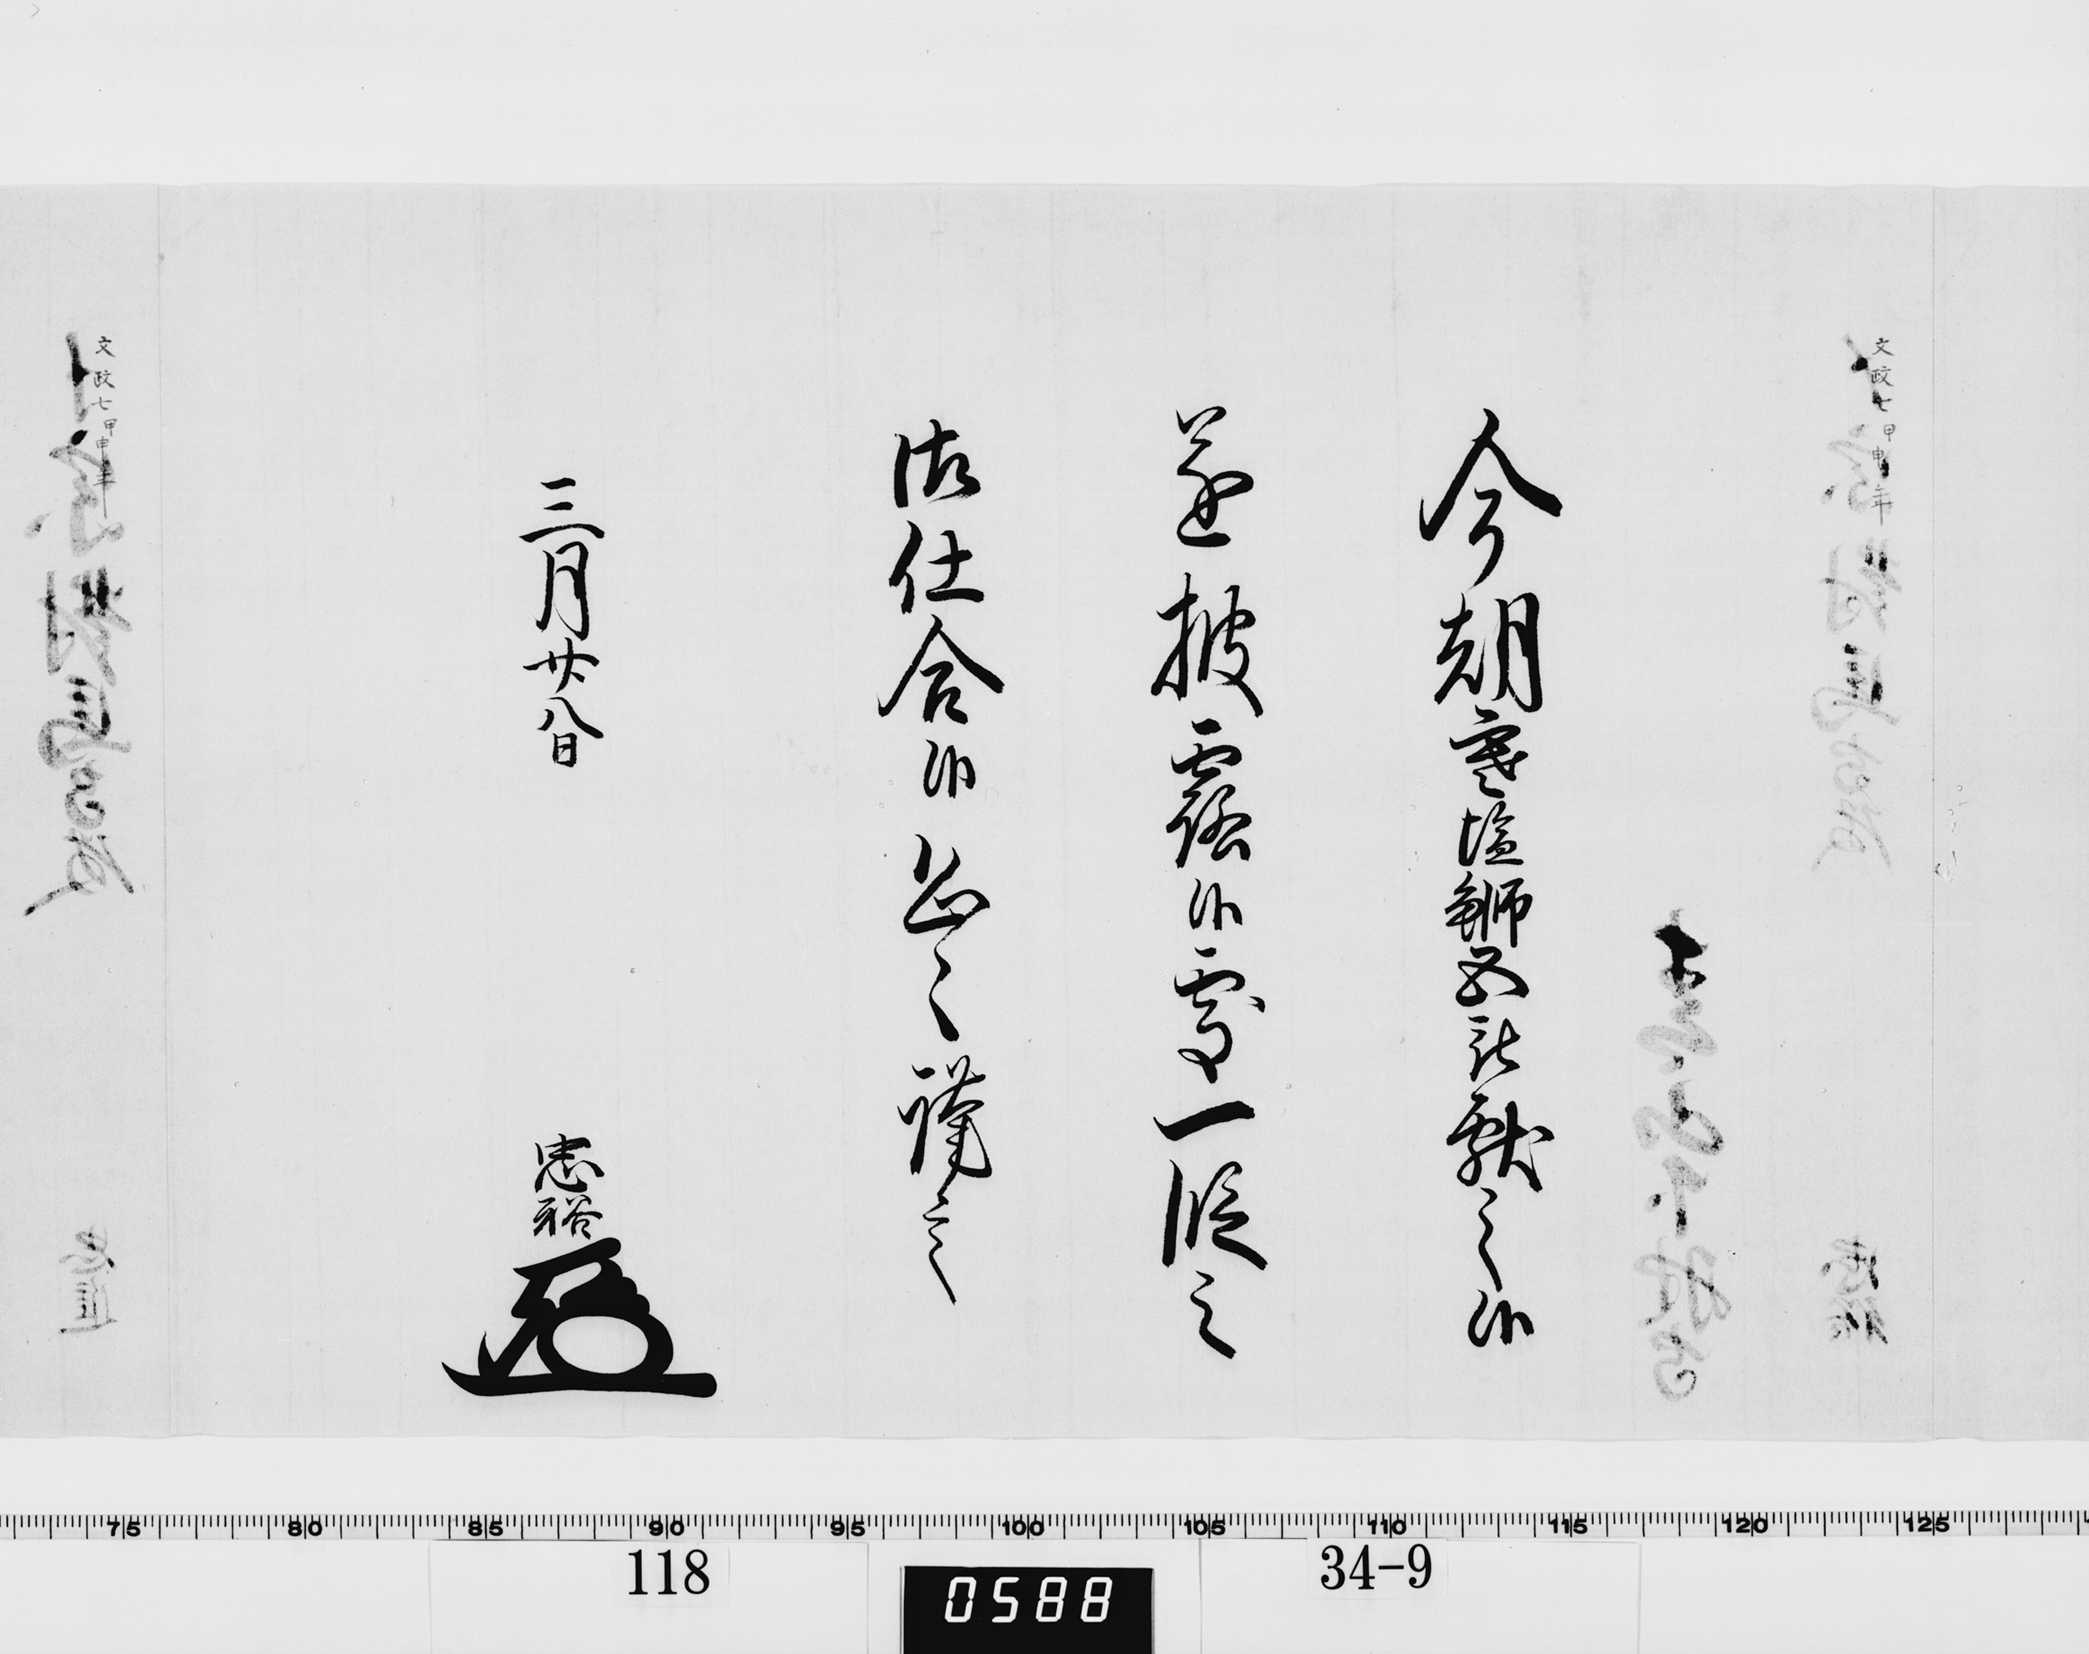 文政七甲申年
今朝寒塩鰤五被献之候
遂披露候処一段之
御仕合候恐々謹言
三月廿八日
忠裕
文政七甲申年
75 80 85 90 95 100 105 110 115 120 125
118
0588
34-9